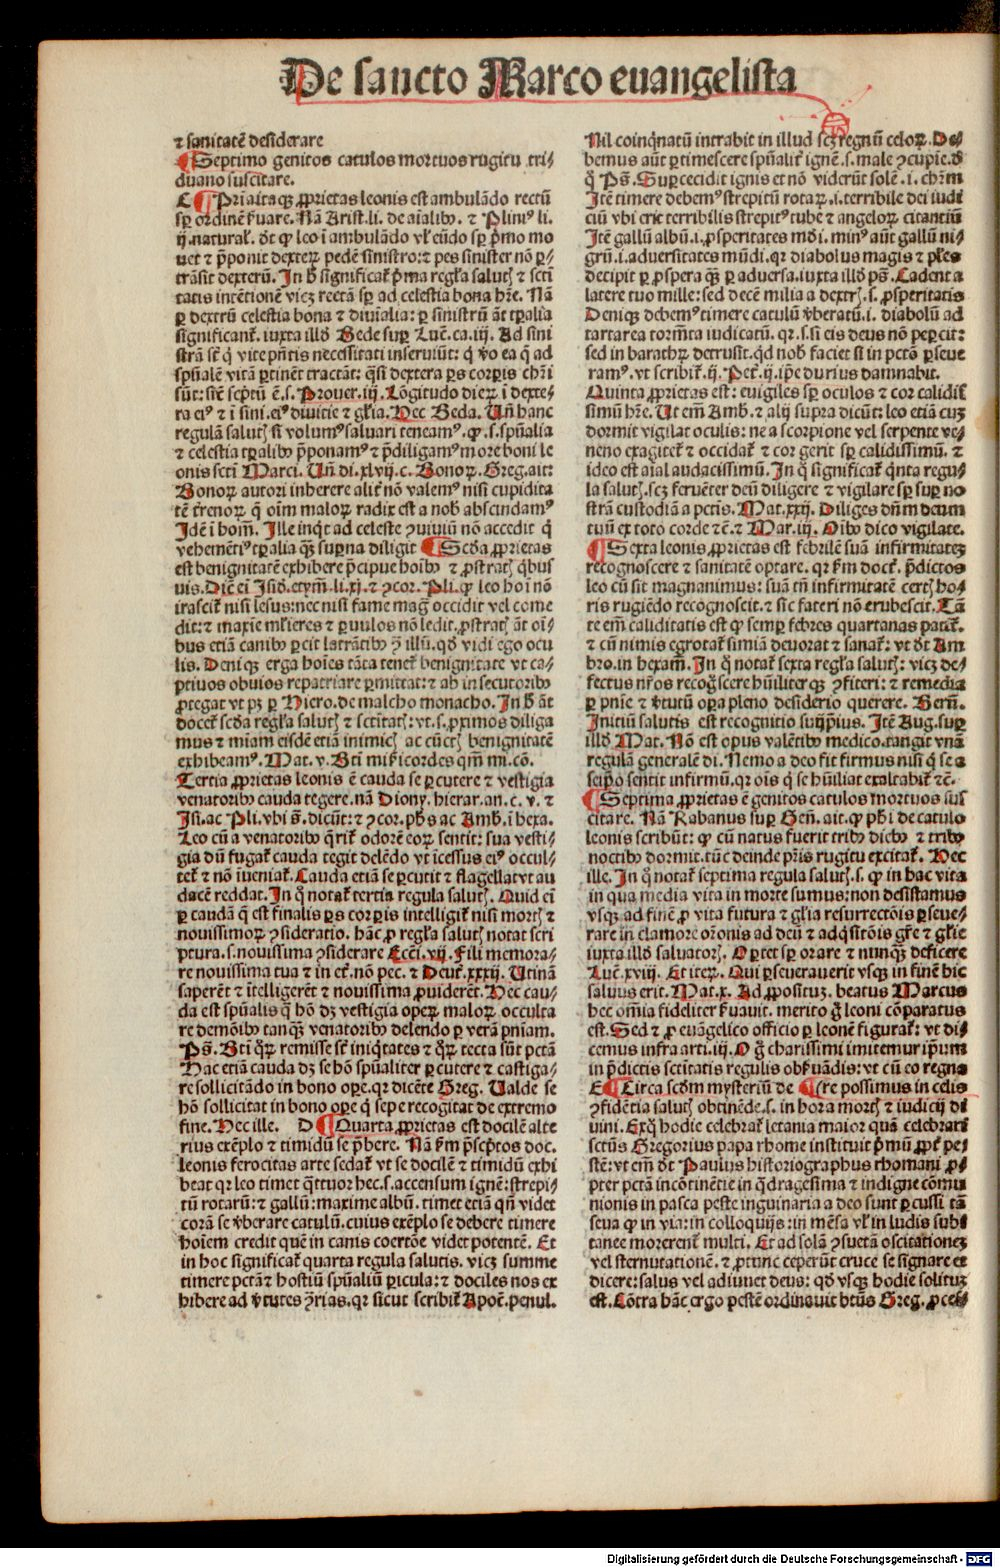 De sancto Marco euangelista
⁊ sanitatē desiderare
¶ Septimo genitos catulos mortuos rugitu tri⸗
duano suscitare.
C ¶ Pria itaqꝫ ꝓprietas leonis est ambulādo rectū
sꝑ ordinē ẜuare. Nā Arist. li. de aīalibꝰ. ⁊ Pliniꝰ li.
ij. natural. dt̄ ꝙ leo ī ambulādo vl̓ eūdo sꝑ p̄mo mo
uet ⁊ p̄ponit dexteꝝ pedē sinistro: ⁊ pes sinister nō ꝑ⸗
trāsit dexterū. In h̄ significat̄ p̄ma regl̓a saluti ⁊ scti
tatis intētionē vicꝫ rectā sꝑ ad celestia bona hr̄e. Nā
ꝑ dextrū celestia bona ⁊ diuīalia: ꝑ sinistrū āt tꝑalia
significant̄. iuxta illd̓ Bede suꝑ Luc̄. ca. iij. Ad sini
strā st̄ q̇ vite pn̄tis necessitati inseruiūt: q̇ v̓o ea q̄ ad
spūalē vitā ꝑtinēt tractāt: q̄si dextera ꝑs corꝑis chr̄i
sūt: sic̄ scptū ē. s. Prouer. iij. Lōgitudo dieꝝ ī dexte⸗
ra eiꝰ ⁊ ī sini. eiꝰ diuitie ⁊ gl̓ia. Hec Beda. Un̄ hanc
regulā saluti si volumꝰ saluari teneamꝰ. ꝙ. s. spūalia
⁊ celestia tꝑalibꝰ p̄ponamꝰ ⁊ p̄diligamꝰ more boni le
onis scti Marci. Un̄ di. xlvij. c. Bonoꝝ. Greg. ait:
Bonoꝝ autori inherere alit̄ nō valemꝰ nisi cupidita
tē t̓renoꝝ q̄ oīm maloꝝ radix est a nob̓ abscindamꝰ
Idē ī hom̄. Ille inq̇t ad celeste ꝯuiuiū nō accedit q̇
vehemētiꝰ tꝑalia q̄ꝫ suꝑna diligit ¶ Scd̓a ꝓprietas
est benignitatē exhibere p̄cipue hoībꝰ ⁊ ꝓstrati q̇bus
uis. Dic̄ ei Isid̓. etym̄. li. xi. ⁊ ꝯcor. Pli. ꝙ leo hoī nō
irascit̄ nisi lesus: nec nisi fame mag̓ occidit vel come
dit: ⁊ maxīe ml̓ieres ⁊ ꝑuulos nō ledit. ꝓstrati āt oī⸗
bus etiā canibꝰ ꝑcit latrātibꝰ ꝯ illū. qd̓ vidi ego ocu
lis. Deniqꝫ erga hoīes tāta tenet̄ benignitate vt ca⸗
ptiuos obuios repatriare ꝑmittat: ⁊ ab insecutoribꝰ
ꝓtegat vt pꝫ ꝑ Hiero. de malcho monacho. In h̄ āt
docet̄ scd̓a regl̓a saluti ⁊ sctitati: vt. s. ꝓximos diliga
mus ⁊ miam eisdē etiā inimici ac cūcti benignitatē
exhibeamꝰ. Mat. v. Bti mis̓icordes qm̄ mi. cō.
Tertia ꝓprietas leonis ē cauda se ꝑcutere ⁊ vestigia
venatoribꝰ cauda tegere. nā Diony. hierar. an. c. v. ⁊
Isi. ac Pli. vbi s̄. dicūt: ⁊ ꝯcor. phs̄ ac Amb. ī hexa.
Leo cū a venatoribꝰ q̄rit̄ odorē eoꝝ sentit: sua vesti⸗
gia dū fugat̄ cauda tegit delēdo vt īcessus eiꝰ occul⸗
tet̄ ⁊ nō iueniat̄. Cauda etiā se ꝑcutit ⁊ flagellat vt au
dacē reddat. In q̄ notat̄ tertia regula saluti. Quid ei
ꝑ caudā q̄ est finalis ꝑs corꝑis intelligit̄ nisi morti ⁊
nouissimoꝝ ꝯsideratio. hāc ꝓ regl̓a saluti notat scri
ptura. s. nouissima ꝯsiderare Ecci̓. vij. Fili memora⸗
re nouissima tua ⁊ in et̄. nō pec. ⁊ Deut̄. xxxij. Utinā
saperēt ⁊ ītelligerēt ⁊ nouissima ꝓuiderēt. Hec cau⸗
da est spūalis q̄ hō dꝫ vestigia opeꝝ maloꝝ occulta
re demōibꝰ tanqꝫ venatoribꝰ delendo ꝑ verā pn̄iam.
Ps̄. Bti q̄ꝝ remisse st̄ iniq̇tates ⁊ q̄ꝝ tecta sūt pctā
Hac etiā cauda dꝫ se hō spūaliter ꝑcutere ⁊ castiga⸗
re sollicitādo in bono oꝑe. qꝛ dicēte Greg. Ualde se
hō sollicitat in bono oꝑe q̇ sepe recogitat de extremo
fine. Hec ille. D ¶ Quarta ꝓprietas est docilē alte
rius exēplo ⁊ timidū se p̄bere. Nā ẜm p̄scptos doc.
leonis ferocitas arte sedat̄ vt se docilē ⁊ timidū exhi
beat qꝛ leo timet q̄ttuor hec. s. accensum ignē: strepi⸗
tū rotarū: ⁊ gallū: maxime albū. timet etiā qn̄ videt
corā se v̓berare catulū. cuius exēplo se debere timere
hoīem credit quē in canis coertōe videt potentē. Et
in hoc significat̄ quarta regula salutis. vicꝫ summe
timere pctā ⁊ hostiū spūaliū ꝑicula: ⁊ dociles nos ex
hibere ad v̓tutes ꝯrias. qꝛ sicut scribit̄ Apoc̄. penul.
Nil coinq̇natū intrabit in illud scꝫ regnū celoꝝ. De⸗
bemus aūt ꝑtimescere spūalit̄ ignē. s. male ꝯcupīe. d̓
q̄ Ps̄. Suꝑcecidit ignis et nō viderūt solē. i. chr̄m
Itē timere debemꝰ strepitū rotaꝝ. i. terribile dei iudi
ciū vbi erit terribilis strepitꝰ tube ⁊ angeloꝝ citantiū
Itē gallū albū. i. ꝓsperitates mūdi. minꝰ aūt gallū ni⸗
grū. i. aduersitates mūdi. qꝛ diabolus magis ⁊ ples
decipit ꝑ ꝓspera q̄ꝫ ꝑ aduersa. iuxta illd̓ ps̄. Cadent a
latere tuo mille: sed decē milia a dextri. s. ꝓsperitatis
Denique debemꝰ timere catulū v̓beratū. i. diabolū ad
tartarea torm̄ta iudicatū. qꝛ. s. si eis deus nō peꝑcit:
sed in barathꝝ detrusit. qd̓ nob̓ faciet si in pctō ꝑseue
ramꝰ. vt scribit̄. ij. Pet̄. ij. ip̄e durius damnabit.
Quinta ꝓprietas est: euigiles sꝑ oculos ⁊ cor calidis
simū hr̄e. Ut em̄ Amb. ⁊ alij supra dicūt: leo etiā cuꝫ
dormit vigilat oculis: ne a scorpione vel serpente ve⸗
neno exagitet̄ ⁊ occidat̄ ⁊ cor gerit sꝑ calidissimū. ⁊
ideo est aīal audacissimū. In q̄ significat̄ q̇nta regu⸗
la saluti. scꝫ feruēter deū diligere ⁊ vigilare sꝑ suꝑ no
strā custodiā a pctis. Mat. xxij. Diliges dn̄m deum
tuū ex toto corde ⁊c̄. ⁊ Mar. iij. Oibꝰ dico vigilate.
¶ Sexta leonis ꝓprietas est febrilē suā infirmitateꝫ
recognoscere ⁊ sanitatē optare. qꝛ ẜm doct̄. p̄dictos
leo cū sit magnanimus: suā tn̄ infirmitatē certi ho⸗
ris rugiēdo recognoscit. ⁊ sic fateri nō erubescit. Tā
te em̄ caliditatis est ꝙ semꝑ febres quartanas patit̄.
⁊ cū nimis egrotat̄ simiā deuorat ⁊ sanat̄: vt dt̄ Am
bro. in hexam̄. In q̄ notat̄ sexta regl̓a saluti: vicꝫ de⸗
fectus nr̄os recog̓scere hūiliter qꝫ ꝯfiteri: ⁊ remedia
ꝑ pnīe ⁊ v̓tutū oꝑa pleno desiderio querere. Bern̄.
Initiū salutis est recognitio suijp̄ius. Itē Aug. suꝑ
illd̓ Mat. Nō est opus valētibꝰ medico. tangit vnā
regulā generalē di. Nemo a deo fit firmus nisi q̇ se a
seip̄o sentit infirmū. qꝛ oīs q̇ se hūiliat exaltabit̄ ⁊c̄.
¶ Septima ꝓprietas ē genitos catulos mortuos sus
citare. Nā Rabanus suꝑ Gen̄. ait. ꝙ phi de catulo
leonis scribūt: ꝙ cū natus fuerit tribꝰ diebꝰ ⁊ tribꝰ
noctibꝰ dormit. tūc deinde pr̄is rugitu excitat̄. Hec
ille. In q̄ notat̄ septima regula saluti. s. ꝙ in hac vita
in qua media vita in morte sumus: non desistamus
vsqꝫ ad finē ꝓ vita futura ⁊ gl̓ia resurrectōis ꝑseue⸗
rare in clamore orōnis ad deū ⁊ adq̇sitōis gr̄e ⁊ gl̓ie
iuxta illd̓ saluatori. Oꝑtet sꝑ orare ⁊ nunqꝫ deficere
Luc̄. xviij. Et iteꝝ. Qui ꝑseuerauerit vsqꝫ in finē hic
saluus erit. Mat. x. Ad ꝓpositūꝫ. beatus Marcus
hec omīa fideliter ẜuauit. merito g̓ leoni cōparatus
est. Sed ⁊ ꝓ euāgelico officio ꝑ leonē figurat̄: vt di⸗
cemus infra arti. iij. O g̓ charissimi imitemur ip̄um
in p̄dictis sctitatis regulis obẜuādis: vt cū eo regna
E ¶ Circa scd̓m mysteriū de ¶ (re possimus in celis
ꝯfidētia saluti obtinēde. s. in hora morti ⁊ iudicij di
uini. Exq̇ hodie celebrat̄ letania maior quā celebrari
sctūs Gregorius papa rhome instituit p̄mū ꝓt̄ pe⸗
stē: vt em̄ dt̄ Paulus historiographus rhomani ꝓ⸗
pter pctā incōtinētie in q̄dragesima ⁊ indigne cōmu
nionis in pasca peste inguinaria a deo sunt ꝑcussi tā
seua ꝙ in via: in colloquijs: in mēsa vl̓ in ludis subi
tanee morerent̄ multi. Et ad solā ꝯsuetā oscitationeꝫ
vel sternutationē. ⁊ ꝓtunc ceperūt cruce se signare et
dicere: salus vel adiuuet deus: qd̓ vsqꝫ hodie solituꝫ
est. Cōtra hāc ergo pestē ordinauit btūs Greg. ꝓces⸗
Digitalisierung gefördert durch die Deutsche Forschungsgemeinschaft - DFG